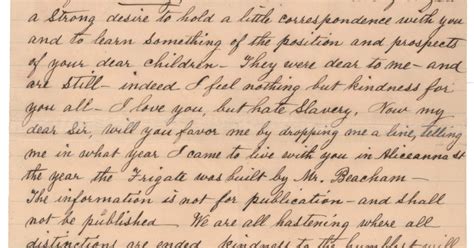 a strong desire to hold a little correspondence with you
and to learn something of the position and prospects
of your dear children – They were dear to me – and
are still – indeed I feel nothing but kindness for
you all – I love you, but hate Slavery, Now my
dear Sir, will you favor me by dropping me a line, telling
me in what year I came to live with you in Aliceanna St
the year the Frigate was built by Mr. Beacham –
The information is not for publication – and shall
not be published – We are all hastening where all
distinctions are ended, kindness to the humblest will